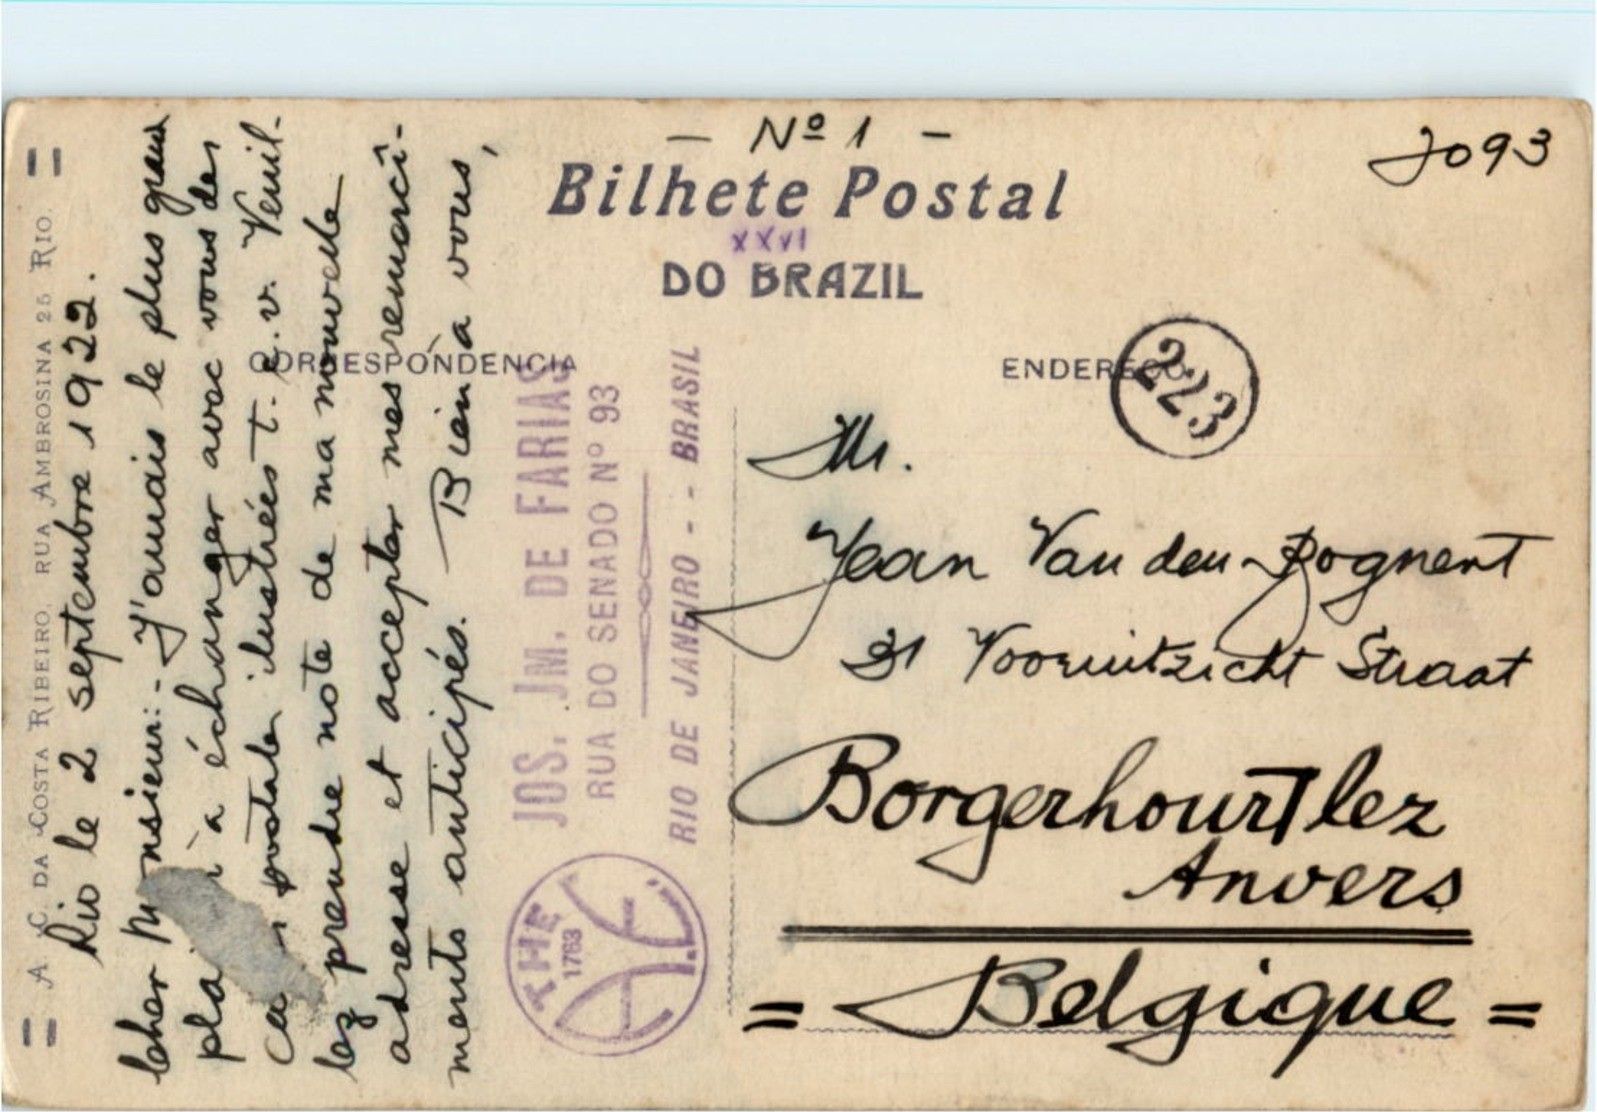 - Nº 1 -
J093
Bilhete Postal
XXVI
DO BRAZIL
CORRESPONDENCIA
ENDEREÇO
223
= A. C. DA COSTA RIBEIRO, RUA AMBROSINA 25 RIO. =
Rio le 2 septembre 1922.
Cher Monsieur:- J'aurais le plus grand
plaisir à échanger avec vous des
cartes postales ilustrées t. c. v. Veuil-
lez prendre note de ma nouvelle
adresse et accepter mes remercî-
ments anticipés. Bien a vous,
JOS. JM. DE FARIAS
RUA DO SENADO Nº 93
RIO DE JANEIRO - - BRASIL
THE
1763
Mr.
Jean Van den Bognert
31 Vooruitzicht Straat
Borgerhourt lez
Anvers
= Belgique =